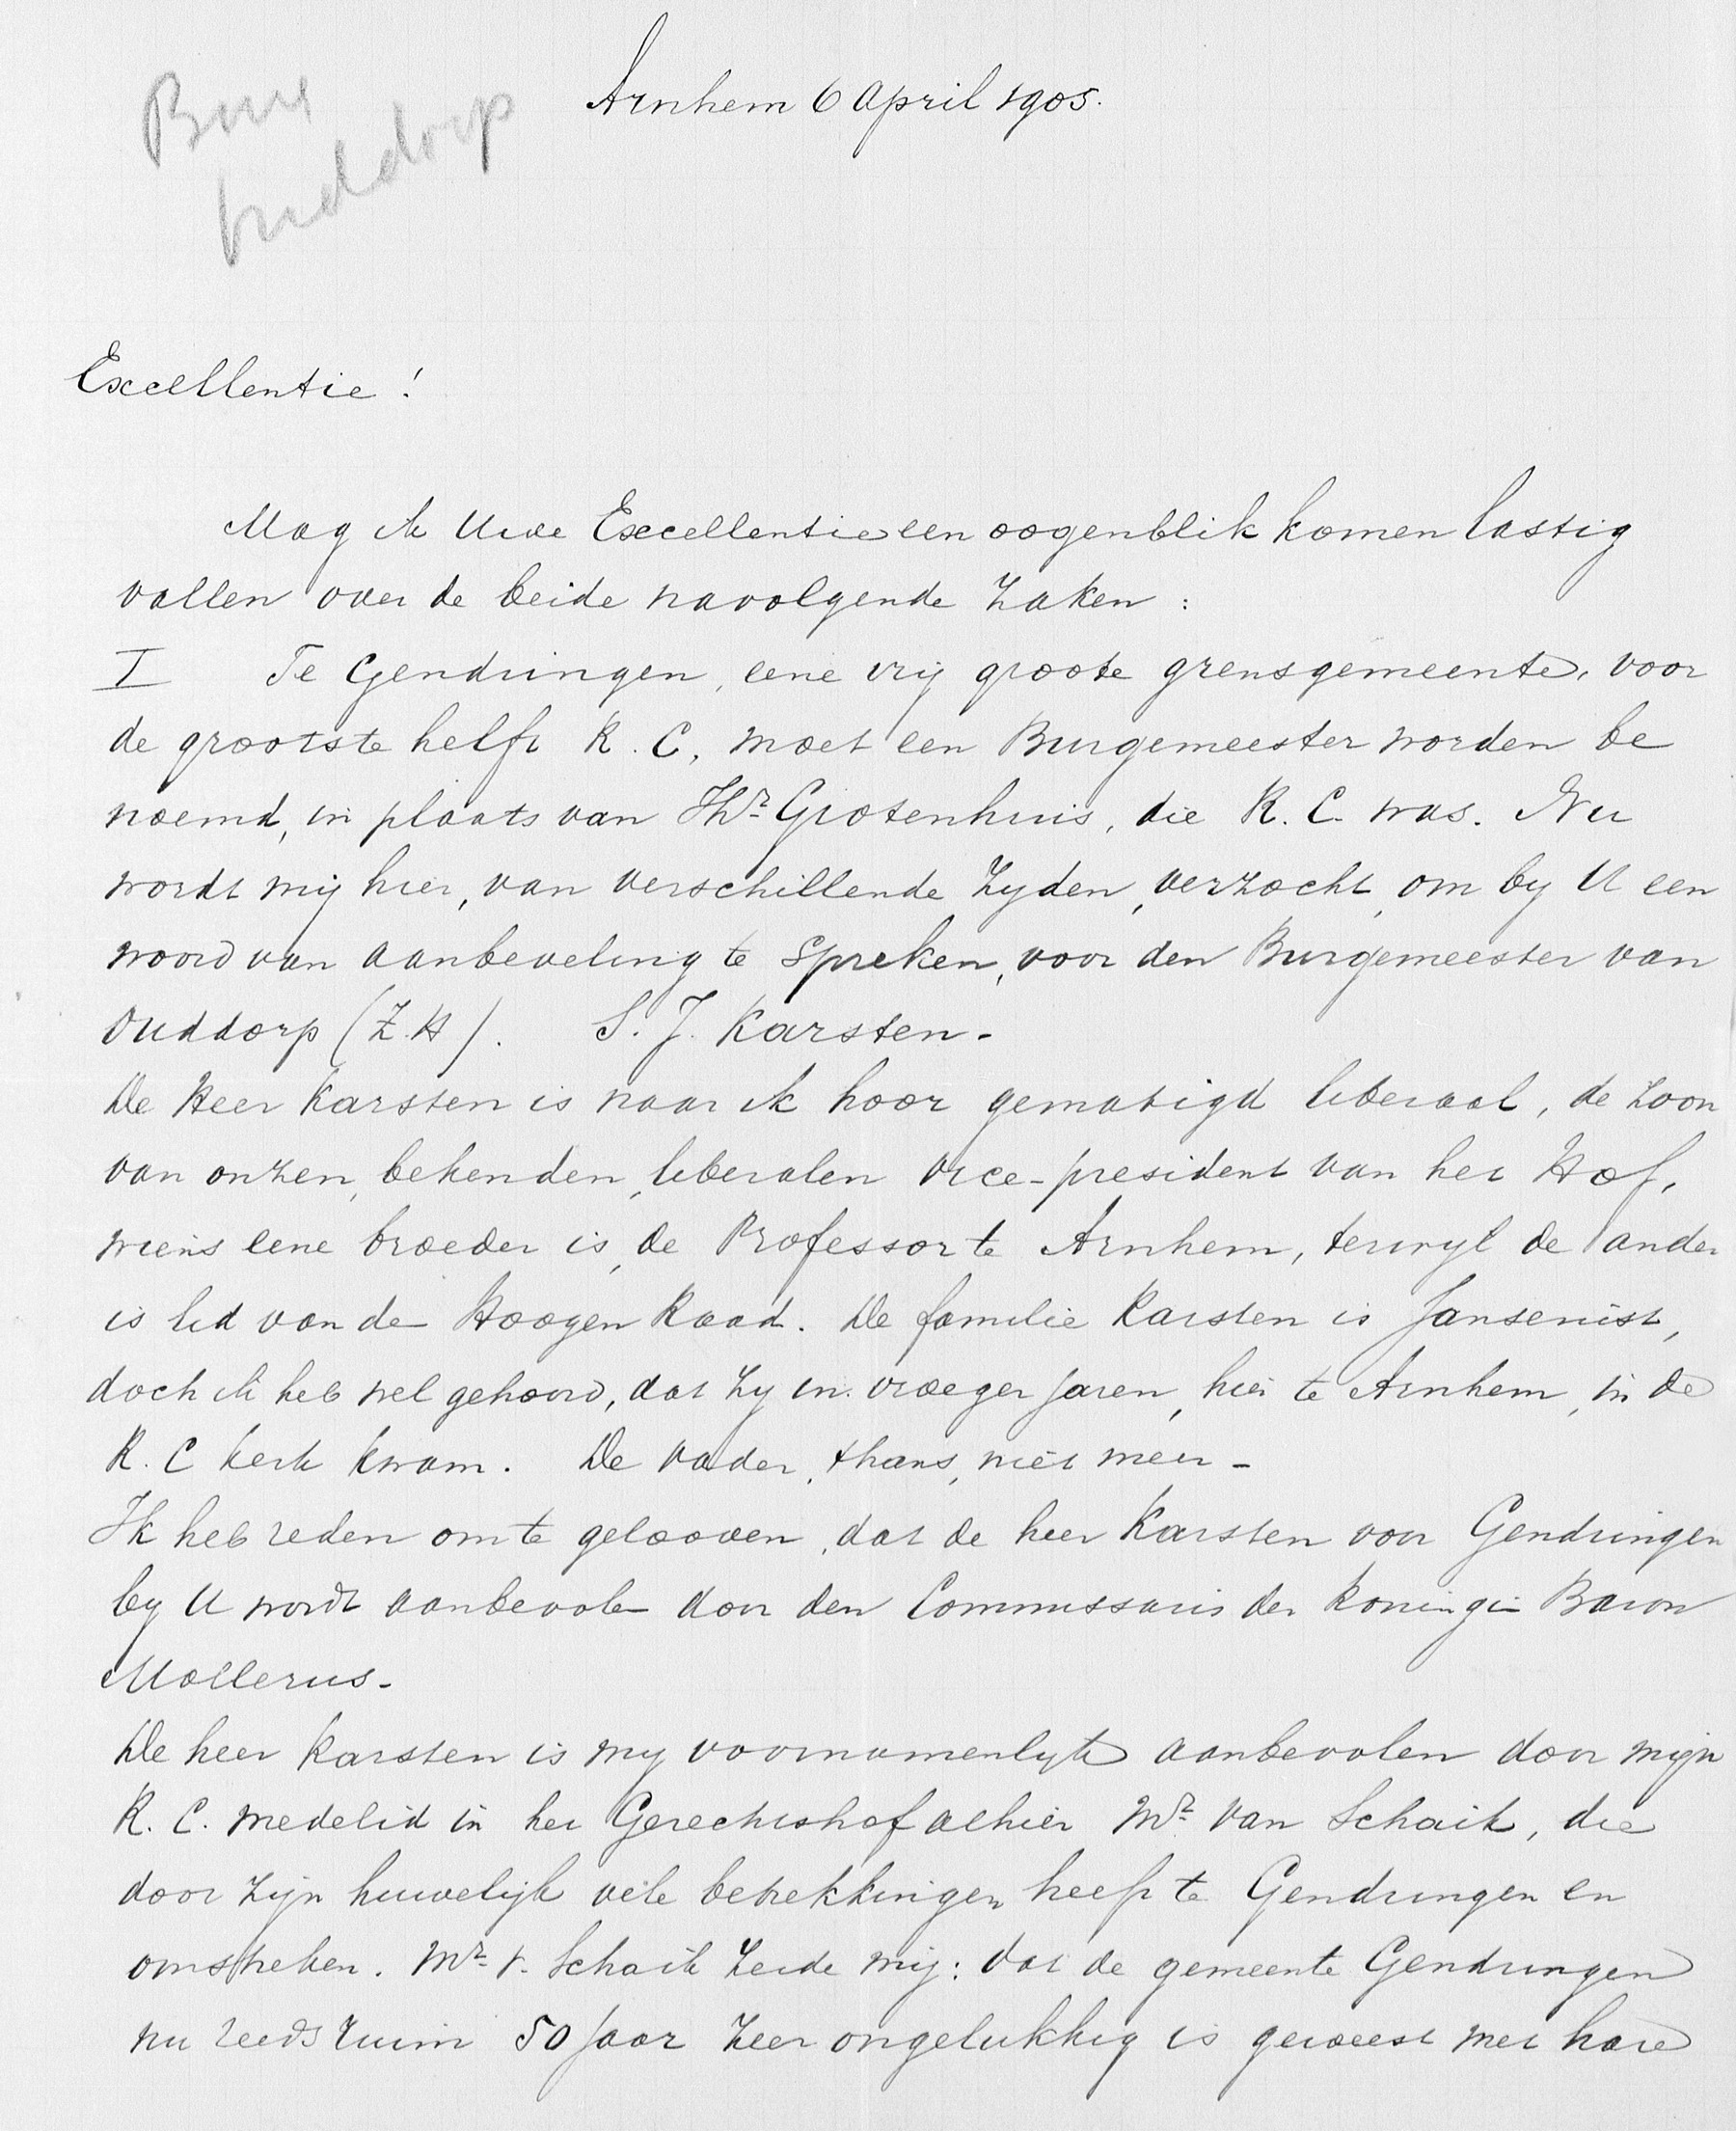 Arnhem 6 April 1905.
Burg
Ouddorp
Excellentie!
Mag ik Uwe Excellentie een oogenblik komen lastig
vallen over de beide navolgende zaken:
I Te Gendringen, eene vrij groote grensgemeente, voor
de grootste helft R. C. moet een Burgemeester worden be
noemd, in plaats van Jhr Grotenhuis, die R. C. was. Nu
wordt mij hier, van verschillende zyden, verzocht, om by U een
woord van aanbeveling te spreken, voor den Burgemeester van
Ouddorp (Z.H). S. J. Karsten -
De Heer Karsten is naar ik hoor gematigd liberaal, de zoon
van onzen, bekenden, liberalen vice-president van het Hof,
wiens eene broeder is, de Professor te Arnhem, terwyl de ander
is lid van de Hoogen Raad. De familie Karsten is Jansenist,
doch ik heb wel gehoord, dat zy in vroeger jaren, hier te Arnhem, in de
R. C kerk kwam. De vader, thans, niet meer -
Ik heb reden om te gelooven, dat de heer Karsten voor Gendringen
by U wordt aanbevolen door den Commissaris der Koningin Baron
Mollerus -
De heer Karsten is my voornamenlyk aanbevolen door mijn
R. C. medelid in het Gerechtshof alhier Mr van Schaik, die
door zijn huwelijk vele betrekkingen heeft te Gendringen en
omstreken. Mr v. Schaik zeide mij: dat de gemeente Gendringen
nu reeds ruim 50 jaar zeer ongelukkig is geweest met hare